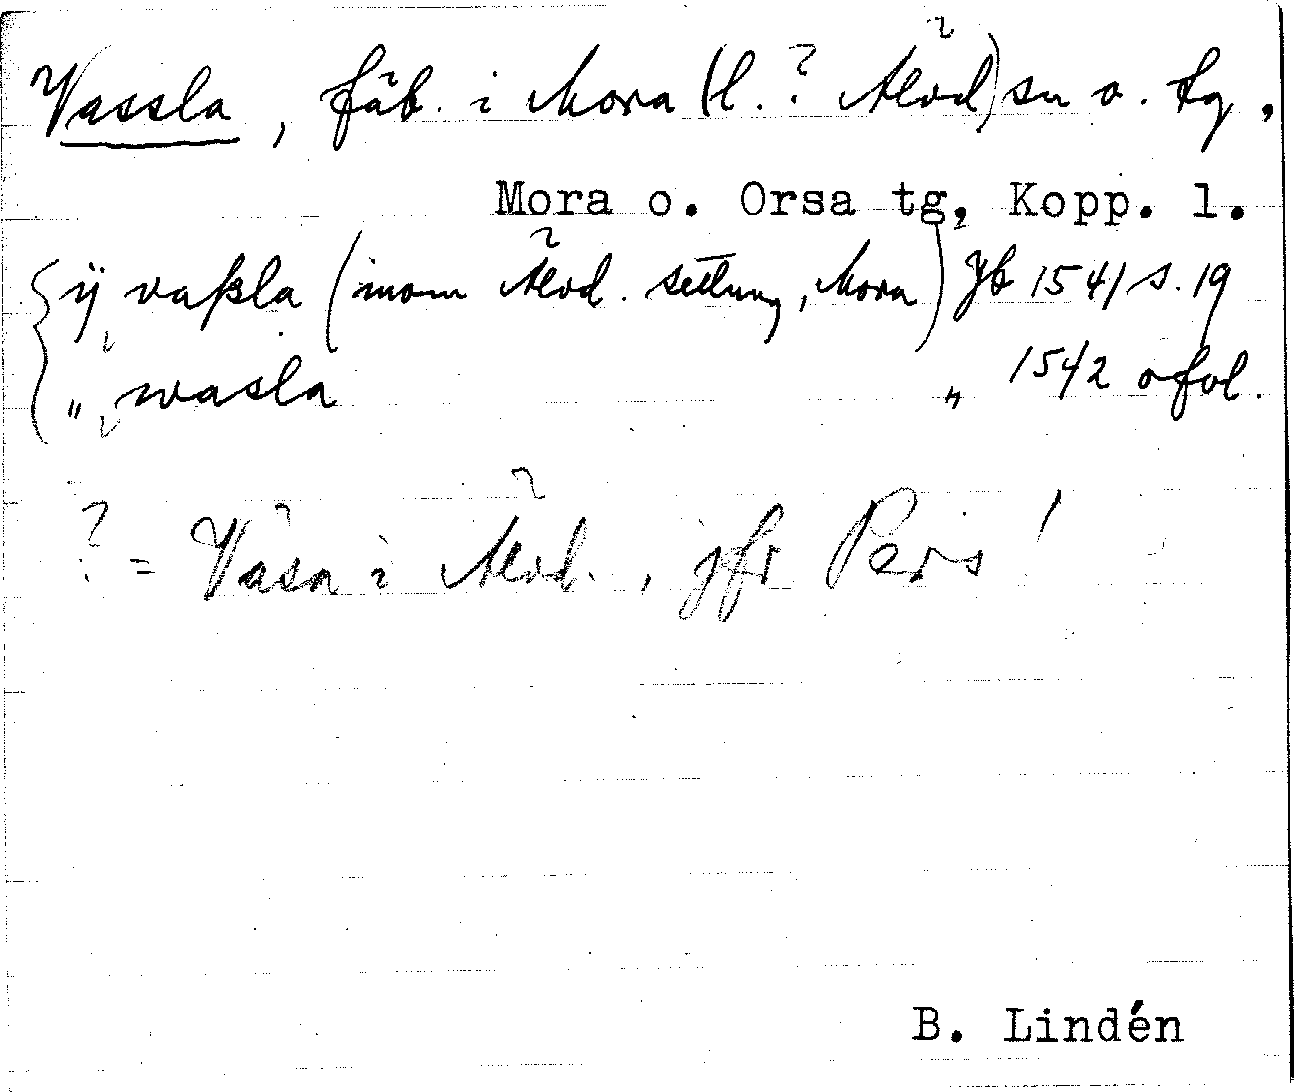 Vassla, fäb. i Mora (l. ? Älvd) sn o. tg,
Mora o. Orsa tg, Kopp. l.
ij vaßla (inom Älvd. settung, Mora) Jb 1541 s. 19
„ wasla „ 1542 o föl.
? = Väsa i Älvd., jfr Pers !
B. Lindén